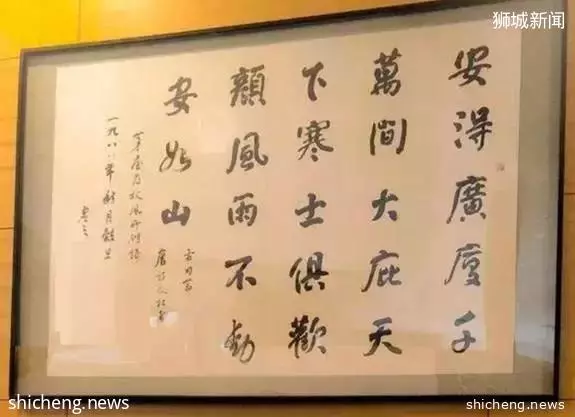 狮城新闻
安得廣廈千
萬間大庇天
下寒士俱歡
顏風雨不動
安如山
唐詩人杜甫
茅屋為秋風所
一九八八年秋月
shicheng.news
shicheng.news